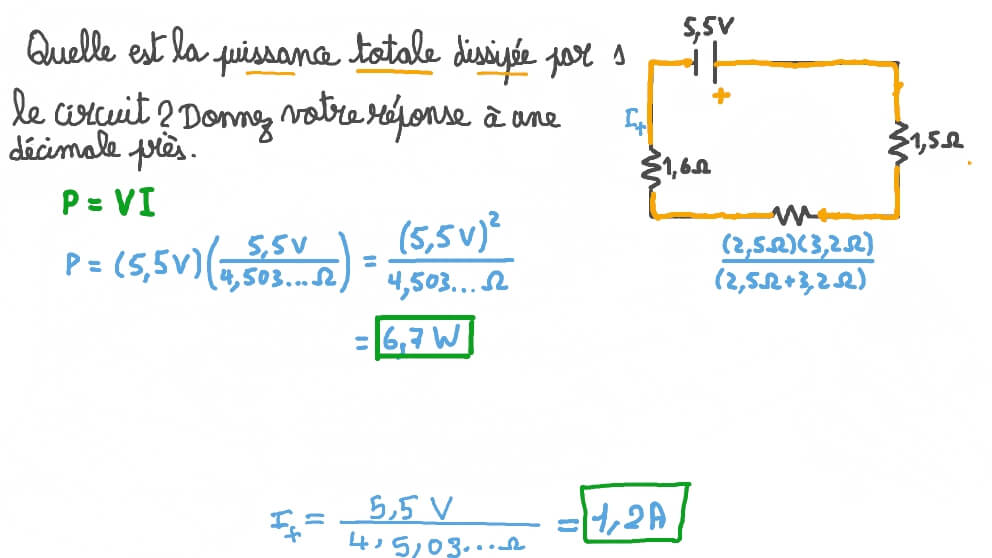 Quelle est la puissance totale dissipée par 1
le circuit ? Donnez votre réponse à une
décimale près.
5,5V
+
I_f
1,6Ω
1,5Ω
(2,5Ω)(3,2Ω)
(2,5Ω+3,2Ω)
P = VI
P = (5,5V)(5,5V/4,503...Ω) = (5,5V)²/4,503...Ω
= 6,7 W
I_f = 5,5 V/4,5,03...Ω = 1,2A